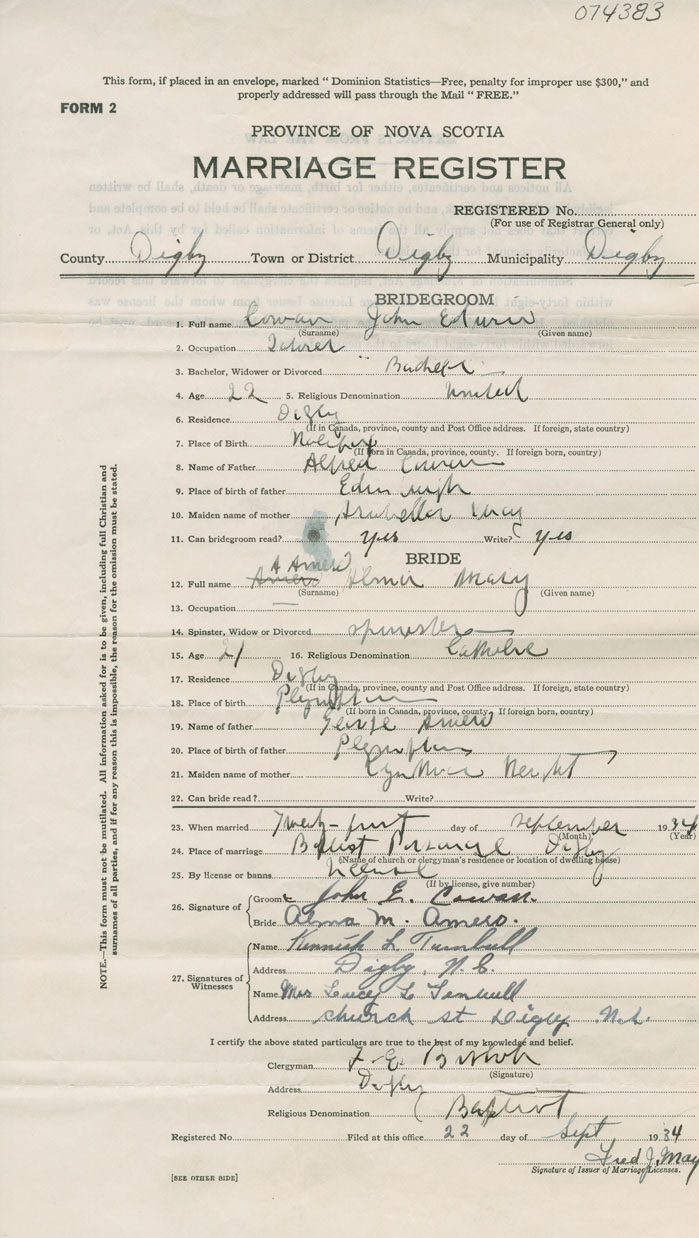 074383
This form, if placed in an envelope, marked "Dominion Statistics—Free, penalty for improper use $300," and
properly addressed will pass through the Mail "FREE."
FORM 2
PROVINCE OF NOVA SCOTIA
MARRIAGE REGISTER
REGISTERED No.
(For use of Registrar General only)
County Digby Town or District Digby Municipality Digby
BRIDEGROOM
1. Full name Cowan John Edwin
(Surname) (Given name)
2. Occupation
3. Bachelor, Widower or Divorced Bachelor
4. Age 22 5. Religious Denomination United
6. Residence Digby
(If in Canada, province, county and Post Office address. If foreign, state country)
7. Place of Birth
(If born in Canada, province, county. If foreign born, country)
8. Name of Father Alfred Cowan
9. Place of birth of father
10. Maiden name of mother
11. Can bridegroom read? yes Write? yes
BRIDE
12. Full name Amero Mary
(Surname) (Given name)
13. Occupation —
14. Spinster, Widow or Divorced spinster
15. Age 21 16. Religious Denomination Catholic
17. Residence Digby
(If in Canada, province, county and Post Office address. If foreign, state country)
18. Place of birth Plympton
(If born in Canada, province, county. If foreign born, country)
19. Name of father George Amero
20. Place of birth of father Plympton
21. Maiden name of mother
22. Can bride read? Write?
23. When married Twenty-first day of September 1934
(Month) (Year)
24. Place of marriage Baptist Parsonage Digby
(Name of church or clergyman's residence or location of dwelling house)
25. By license or banns License
(If by license, give number)
26. Signature of
Groom John E. Cowan.
Bride Alma M. Amero.
27. Signatures of Witnesses
Name Kenneth L Turnbull
Address Digby, N.S.
Name Mrs Lucy L
Address church st Digby N.S.
I certify the above stated particulars are true to the best of my knowledge and belief.
Clergyman
(Signature)
Address Digby
Religious Denomination Baptist
Registered No. Filed at this office 22 day of Sept 1934
Fred J. May
Signature of Issuer of Marriage Licenses.
[SEE OTHER SIDE]
NOTE.—This form must not be mutilated. All information asked for is to be given, including full Christian and
surnames of all parties, and if for any reason this is impossible, the reason for the omission must be stated.